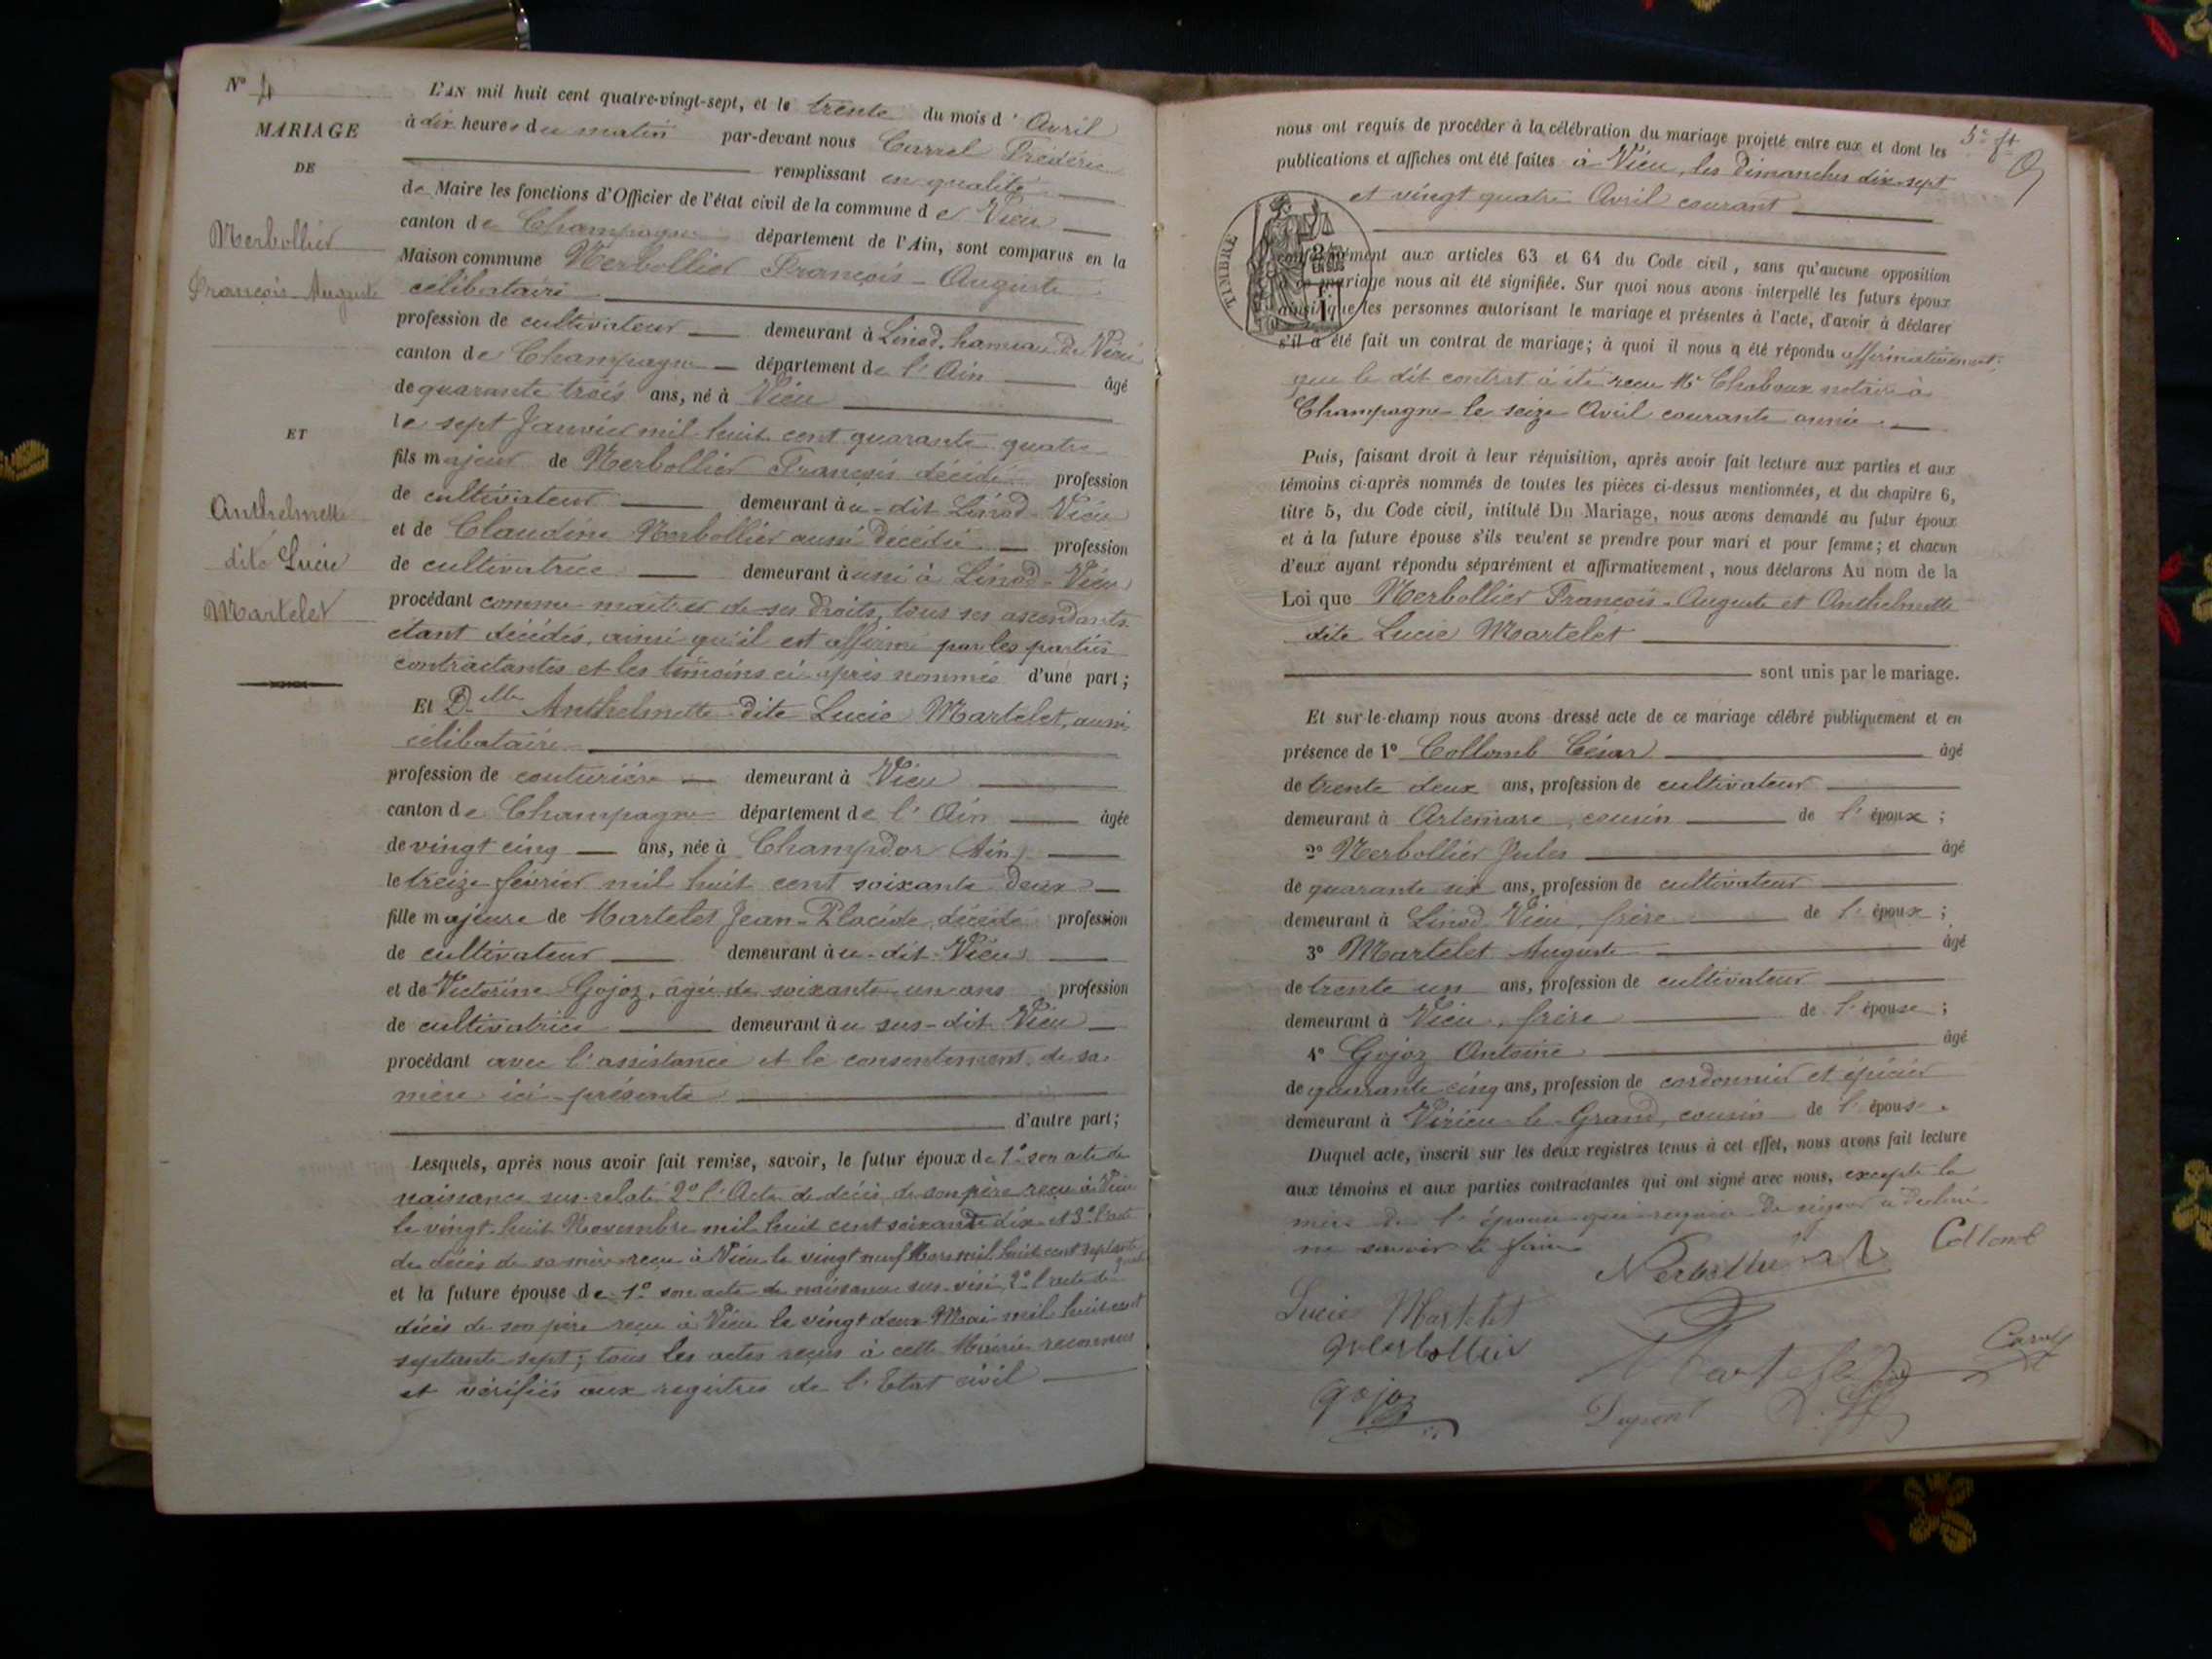 N° 4
MARIAGE
DE
Nerbollier
François-Auguste
ET
Anthelmette
dite Lucie
Martelet
L'AN mil huit cent quatre-vingt-sept, et le trente du mois d'Avril
à dix heures du matin par-devant nous Currel Frédéric
remplissant en qualité
de Maire les fonctions d'Officier de l'état civil de la commune de Vieu
canton de Champagne département de l'Ain, sont comparus en la
Maison commune Nerbollier François-Auguste
célibataire
profession de cultivateur demeurant à Linod, hameau de Vieu
canton de Champagne département de l'Ain âgé
de quarante trois ans, né à Vieu
le sept Janvier mil huit cent quarante quatre
fils majeur de Nerbollier François décédé profession
de cultivateur demeurant au-dit Linod-Vieu
et de Claudine Nerbollier aussi décédée profession
de cultivatrice demeurant aussi à Linod-Vieu
procédant comme maître de ses droits, tous ses ascendants
étant décédés, ainsi qu'il est affirmé par les parties
contractantes et les témoins ci-après nommés d'une part;
Et Delle Anthelmette dite Lucie Martelet, aussi
célibataire
profession de couturière demeurant à Vieu
canton de Champagne département de l'Ain âgée
de vingt cinq ans, née à Champdor (Ain)
le treize février mil huit cent soixante deux
fille majeure de Martelet Jean-Placide, décédé profession
de cultivateur demeurant au-dit Vieu
et de Victorine Gojoz, âgée de soixante un ans profession
de cultivatrice demeurant au sus-dit Vieu
procédant avec l'assistance et le consentement de sa
mère ici présente
d'autre part;
Lesquels, après nous avoir fait remise, savoir, le futur époux de 1° son acte de
naissance sus-relaté 2° l'Acte de décès de son père reçu à Vieu
le vingt huit Novembre mil huit cent soixante dix et 3° l'acte
de décès de sa mère reçu à Vieu le vingt neuf Mars mil huit cent septante
et la future épouse de 1° son acte de naissance sus-visé, 2° l'acte de
décès de son père reçu à Vieu le vingt deux Mai mil huit cent
septante sept; tous les actes reçus à cette Mairie reconnus
et vérifiés aux registres de l'Etat civil
nous ont requis de procéder à la célébration du mariage projeté entre eux et dont les
publications et affiches ont été faites à Vieu, les Dimanches dix-sept
et vingt quatre Avril courant
TIMBRE
conformément aux articles 63 et 64 du Code civil, sans qu'aucune opposition
à ce mariage nous ait été signifiée. Sur quoi nous avons interpellé les futurs époux
ainsi que les personnes autorisant le mariage et présentes à l'acte, d'avoir à déclarer
s'il a été fait un contrat de mariage; à quoi il nous a été répondu affirmativement:
que le dit contrat a été reçu Me Chaboux notaire à
Champagne le seize Avril courante année.
Puis, faisant droit à leur réquisition, après avoir fait lecture aux parties et aux
témoins ci-après nommés de toutes les pièces ci-dessus mentionnées, et du chapitre 6,
titre 5, du Code civil, intitulé Du Mariage, nous avons demandé au futur époux
et à la future épouse s'ils veulent se prendre pour mari et pour femme; et chacun
d'eux ayant répondu séparément et affirmativement, nous déclarons Au nom de la
Loi que Nerbollier François-Auguste et Anthelmette
dite Lucie Martelet
sont unis par le mariage.
Et sur-le-champ nous avons dressé acte de ce mariage célébré publiquement et en
présence de 1° Collomb César âgé
de trente deux ans, profession de cultivateur
demeurant à Artemare, cousin de l'époux;
2° Nerbollier Jules âgé
de quarante six ans, profession de cultivateur
demeurant à Linod Vieu, frère de l'époux;
3° Martelet Auguste âgé
de trente un ans, profession de cultivateur
demeurant à Vieu, frère de l'épouse;
4° Gojoz Antoine âgé
de quarante cinq ans, profession de cordonnier et épicier
demeurant à Virieu-le-Grand, cousin de l'épouse.
Duquel acte, inscrit sur les deux registres tenus à cet effet, nous avons fait lecture
aux témoins et aux parties contractantes qui ont signé avec nous, excepté la
mère de l'épouse que requise de signer a déclaré
ne savoir le faire
Nerbollier
Collomb
Lucie Martelet
Nerbollier
Martelet
gojoz
Dupont